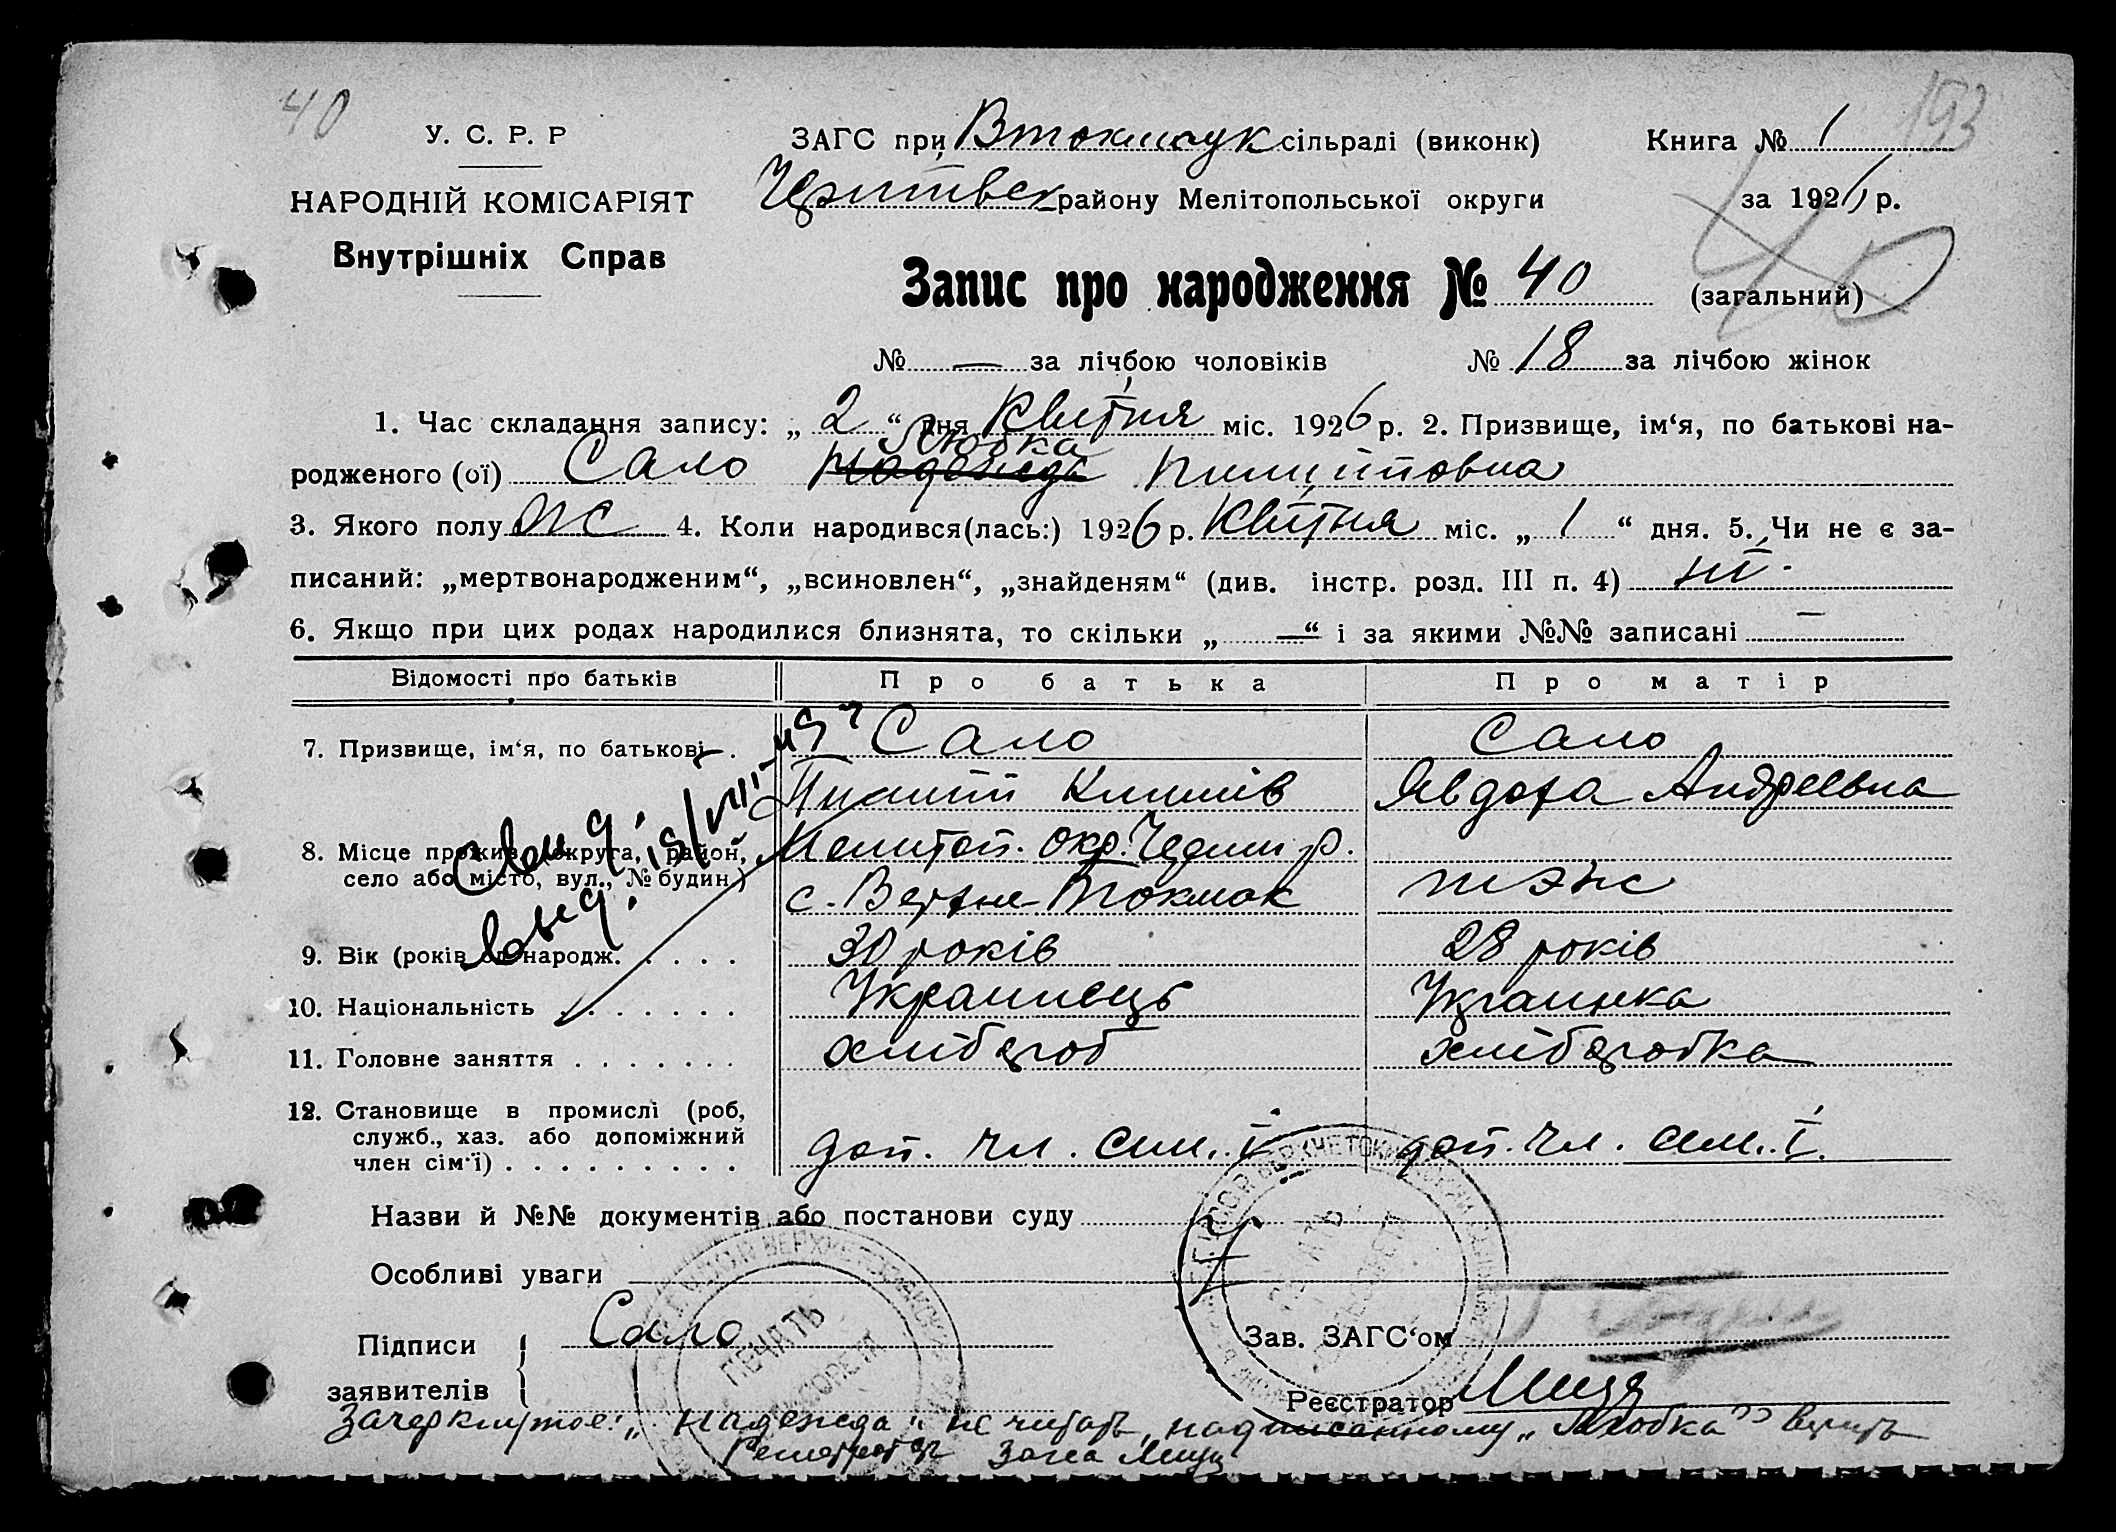 40
193
У. С. Р. Р
ЗАГС при Втокмчук сільраді (виконк)
Книга № 1
НАРОДНІЙ КОМІСАРІЯТ
району Мелітопольської округи
за 1926 р.
Внутрішніх Справ
40
Запис про народження № 40 (загальний)
№ — за лічбою чоловіків № 18 за лічбою жінок
1. Час складання запису: „ 2 “ дня Квітня міс. 1926 р. 2. Призвище, ім‘я, по батькові на-
Любка
родженого (ої) Сало Надежда Пилиповна
3. Якого полу жс 4. Коли народився(лась:) 1926 р. Квітня міс. „ 1 “ дня. 5. Чи не є за-
писаний: „мертвонародженим“, „всиновлен“, „знайденям“ (див. інстр. розд. III п. 4) ні.
6. Якщо при цих родах народилися близнята, то скільки „ — “ і за якими №№ записані —
Відомості про батьків Про батька Про матір
7. Призвище, ім‘я, по батькові . Сало Сало
Явдоха Андреевна
8. Місце прожив. (округа, район, Мелитоп. окр.
село або місто, вул., № будин.) с. Верхне-Втокмак тэжс
9. Вік (років од народж. . . . . . 30 років 28 років
10. Національність . . . . . . . Украинець Украинка
11. Головне заняття . . . . . . . хліборб хліборобка
12. Становище в промислі (роб,
служб., хаз. або допоміжний
член сім‘ї) . . . . . . . . . доп. чл. сим.ї доп. чл. сим.ї.
Назви й №№ документів або постанови суду
Особливі уваги
ПЕЧАТЬ
Підписи Сало
Зав. ЗАГС‘ом
заявителів
Реєстратор
Зачеркнутое: „Надежда“ не читать, надписанному „Любка“ верить
Регистратор Загса